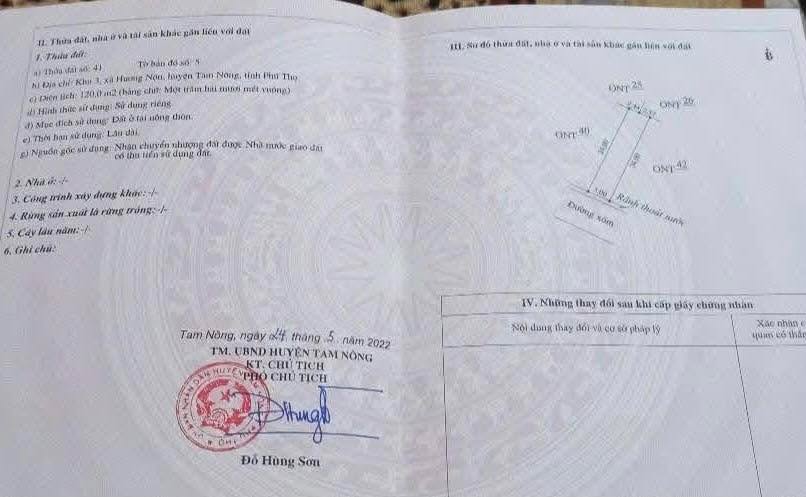 II. Thửa đất, nhà ở và tài sản khác gắn liền với đất
1. Thửa đất:
a) Thửa đất số: 41 Tờ bản đồ số: 8
b) Địa chỉ: Khu 3, xã Hương Nộn, huyện Tam Nông, tỉnh Phú Thọ
c) Diện tích: 120,0 m2 (bằng chữ: Một trăm hai mươi mét vuông)
d) Hình thức sử dụng: Sử dụng riêng
đ) Mục đích sử dụng: Đất ở tại nông thôn.
e) Thời hạn sử dụng: Lâu dài.
g) Nguồn gốc sử dụng: Nhận chuyển nhượng đất được Nhà nước giao đất
có thu tiền sử dụng đất.
2. Nhà ở: -/-
3. Công trình xây dựng khác: -/-
4. Rừng sản xuất là rừng trồng: -/-
5. Cây lâu năm: -/-
6. Ghi chú:
Tam Nông, ngày 24 tháng 5 năm 2022
TM. UBND HUYỆN TAM NÔNG
KT. CHỦ TỊCH
PHÓ CHỦ TỊCH
Đỗ Hùng Sơn
III. Sơ đồ thửa đất, nhà ở và tài sản khác gắn liền với đất
B
ONT 25
ONT 26
ONT 40
ONT 42
24.00
24.00
5.00
Rãnh thoát nước
Đường xóm
IV. Những thay đổi sau khi cấp giấy chứng nhận
Nội dung thay đổi và cơ sở pháp lý
Xác nhận c
quan có thẩm